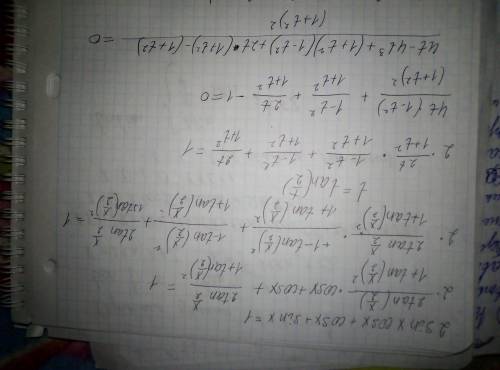 2 sin x cos x + cos x + sin x = 1
2 · 2tan(x/2) / 1+tan(x/2)² · cos x + cos x + 2tan x/2 / 1+tan(x/2)² = 1
2 · 2tan x/2 / 1+tan(x/2)² · 1-tan(x/2)² / 1+tan(x/2)² + 1-tan(x/2)² / 1+tan(x/2)² + 2tan x/2 / 1+tan(x/2)² = 1
t = tan(x/2)
2 · 2t / 1+t² · 1-t² / 1+t² + 1-t² / 1+t² + 2t / 1+t² = 1
4t(1-t²) / (1+t²)² + 1-t² / 1+t² + 2t / 1+t² - 1 = 0
4t-4t³+(1+t²)(1-t²)+2t·(1+t²)-(1+t²)² / (1+t²)² = 0